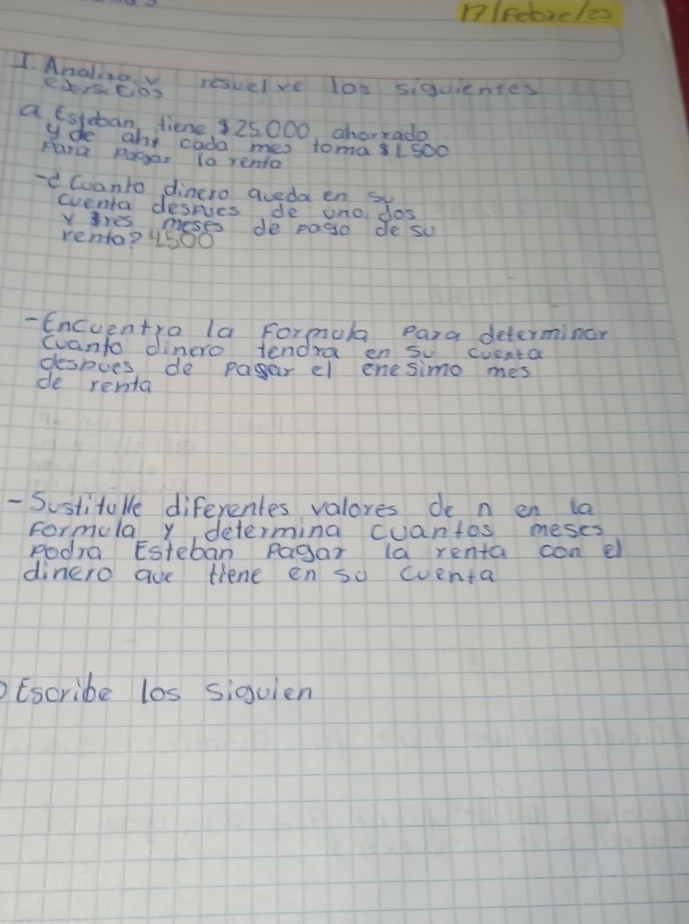 17/Febre/20
I. Analiza y resuelve los siguientes
ejersicios
a Esteban tiene $25.000 ahorrado
y de ahi cada mes toma $1.500
Para pagar la renta
-¿Cuanto dinero queda en su
cuenta despues de uno, dos
y tres meses de pago de su
renta? 4500
-Encuentra la Formula Para determinar
cuanto dinero tendra en su cuenta
despues de pagar el enesimo mes
de renta
-Sustitulle diferentes valores de n en la
Formula y determina cuantos meses
podra Esteban Pagar la renta con el
dinero que tiene en su cuenta
Escribe los siguien